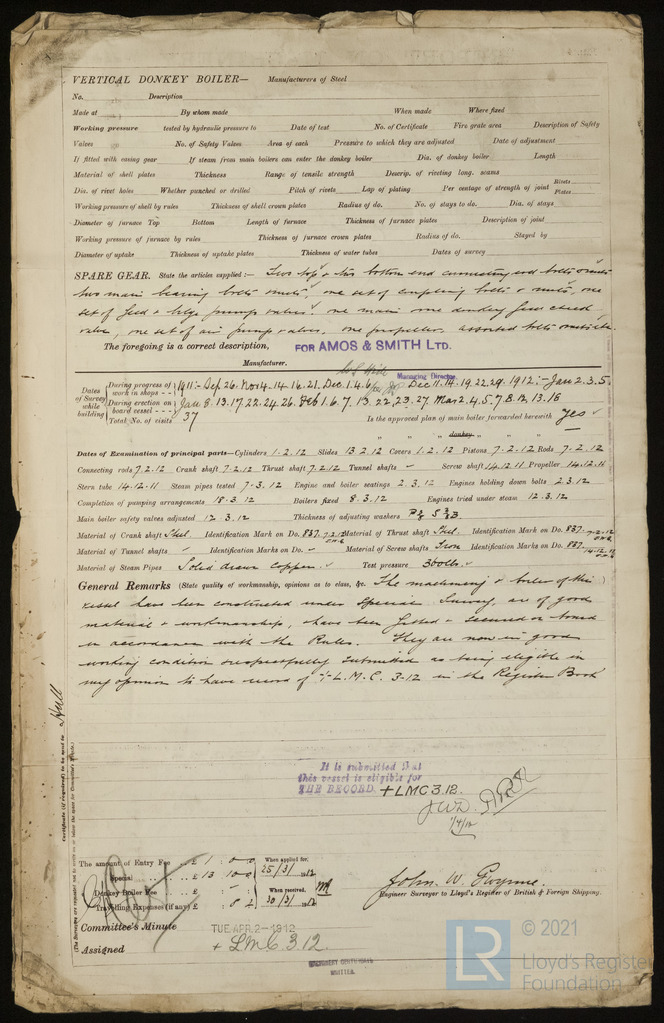 VERTICAL DONKEY BOILER— Manufacturers of Steel
No. Description
Made at By whom made When made Where fixed
Working pressure tested by hydraulic pressure to Date of test No. of Certificate Fire grate area Description of Safety
Valves No. of Safety Valves Area of each Pressure to which they are adjusted Date of adjustment
If fitted with easing gear If steam from main boilers can enter the donkey boiler Dia. of donkey boiler Length
Material of shell plates Thickness Range of tensile strength Descrip. of riveting long. seams
Dia. of rivet holes Whether punched or drilled Pitch of rivets Lap of plating Per centage of strength of joint Rivets Plates
Working pressure of shell by rules Thickness of shell crown plates Radius of do. No. of stays to do. Dia. of stays
Diameter of furnace Top Bottom Length of furnace Thickness of furnace plates Description of joint
Working pressure of furnace by rules Thickness of furnace crown plates Radius of do. Stayed by
Diameter of uptake Thickness of uptake plates Thickness of water tubes Dates of survey
SPARE GEAR. State the articles supplied:— Two top & two bottom end connecting rod bolts & nuts
two main bearing bolts & nuts, one set of coupling bolts & nuts, one
set of feed & bilge pump valves. one main one donkey feed check
valve, one set of air pump valves. one propeller. assorted bolts & nuts &c.
The foregoing is a correct description, FOR AMOS & SMITH LTD.
Manufacturer.
Managing Director.
Dates of Survey while building
During progress of work in shops - - 1911:- Sep. 26. Nov 4. 14. 16. 21. Dec. 1. 4. 6. Dec 11. 14. 19. 22. 29. 1912:- Jan 2. 3. 5
During erection on board vessel - - - Jan 8. 13. 17. 22. 24. 26. Feb 1. 6. 7. 13. 22. 23. 27. Mar 2. 4. 5. 7. 8. 12. 13. 18
Total No. of visits 37 Is the approved plan of main boiler forwarded herewith Yes
" " donkey " "
Dates of Examination of principal parts—Cylinders 1.2.12 Slides 13.2.12 Covers 1.2.12 Pistons 7.2.12 Rods 7.2.12
Connecting rods 7.2.12 Crank shaft 7.2.12 Thrust shaft 7.2.12 Tunnel shafts - Screw shaft 14.12.11 Propeller 14.12.11
Stern tube 14.12.11 Steam pipes tested 7.3.12 Engine and boiler seatings 2.3.12 Engines holding down bolts 2.3.12
Completion of pumping arrangements 18.3.12 Boilers fixed 8.3.12 Engines tried under steam 12.3.12
Main boiler safety valves adjusted 12.3.12 Thickness of adjusting washers
Material of Crank shaft Steel. Identification Mark on Do. 837. 7.2.12 Material of Thrust shaft Steel. Identification Mark on Do. 837. 7.2.12
Material of Tunnel shafts - Identification Marks on Do. - Material of Screw shafts Iron Identification Marks on Do. 837. 14.12.11
Material of Steam Pipes Solid drawn copper. Test pressure 360 lbs.
General Remarks (State quality of workmanship, opinions as to class, &c. The machinery & boiler of this
vessel have been constructed under Special Survey, are of good
material & workmanship, & have been fitted & secured on board
in accordance with the Rules. They are now in good
working condition & respectfully submitted as being eligible in
my opinion to have record of + L.M.C. 3-12 in the Register Book
It is submitted that
this vessel is eligible for
THE RECORD. + LMC 3.12.
J.W.D.
1/4/12
Hull
Certificate (if required) to be sent to
(The Surveyors are requested not to write on or below the space for Committee's Minute.)
The amount of Entry Fee .. £ 1 : 0 : 0 When applied for,
Special .. .. £ 13 : 10 : 0 25/3/1912
Donkey Boiler Fee .. .. £ When received,
Travelling Expenses (if any) £ 30/3/1912
John W. Gwynne.
Engineer Surveyor to Lloyd's Register of British & Foreign Shipping.
Committee's Minute TUE. APR. 2-1912
Assigned + LMC 3.12.
MACHINERY CERTIFICATE
WRITTEN.
LR
© 2021
Lloyd's Register
Foundation